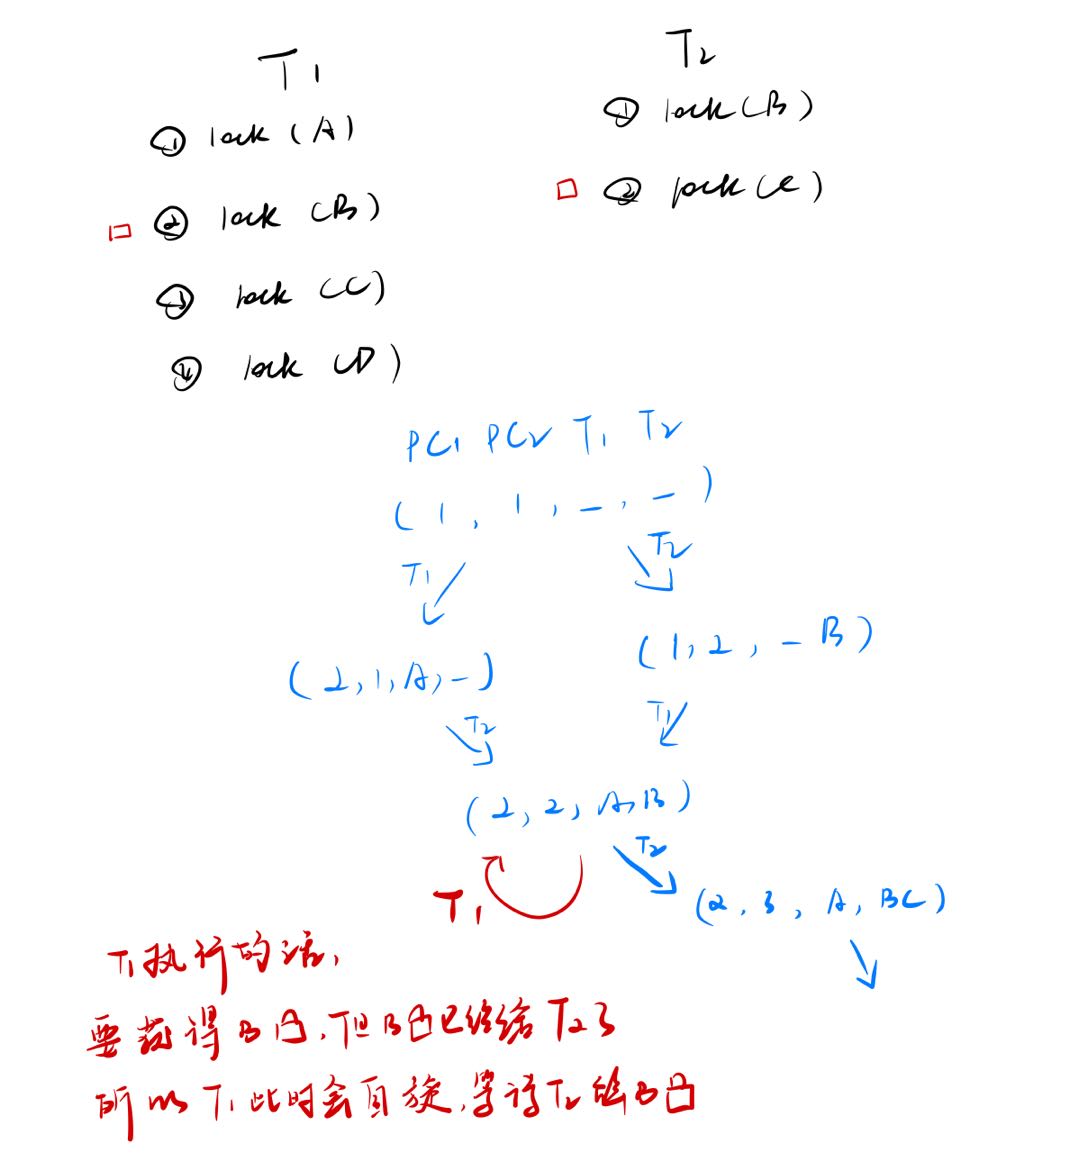 T1
T2
① lock (A)
① lock(B)
② lock (B)
② lock(C)
③ lock (C)
④ lock (D)
PC1 PC2 T1 T2
( 1 , 1 , _ , _ )
T1
T2
( 2 , 1 , A , - )
( 1 , 2 , - B )
T2
T1
( 2 , 2 , A , B )
T2
T1
(2 , 3 , A , BC )
T1执行的话,
要获得B凸,但B凸已经给T2了
所以T1此时会自旋,等待T2 B凸